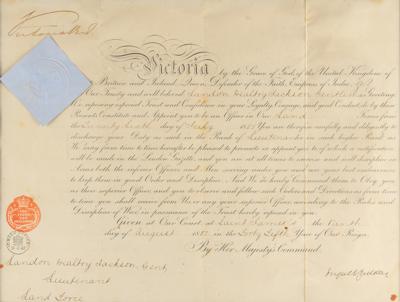 Victoria R
Victoria by the Grace of God, of the United Kingdom of
Britain and Ireland, Queen, Defender of the Faith, Empress of India, &c.
Our Trusty and well beloved Landon Gentleman Greeting.
We reposing especial Trust and Confidence in your Loyalty, Courage, and good Conduct, do by these
Presents Constitute and Appoint you to be an Officer in Our Land Forces from
the day of 188 You are therefore carefully and diligently to
discharge your Duty as such in the Rank of Lieutenant or in such higher Rank as
We may from time to time hereafter be pleased to promote or appoint you to of which a notification
will be made in the London Gazette, and you are at all times to exercise and well discipline in
Arms both the inferior Officers and Men serving under you and use your best endeavours
to keep them in good Order and Discipline. And We do hereby Command them to Obey you
as their superior Officer, and you to observe and follow such Orders and Directions as from time
to time you shall receive from Us or any your superior Officer, according to the Rules and
Discipline of War, in pursuance of the Trust hereby reposed in you.
Given at Our Court, at Saint James's the
day of August 188 in the Year of Our Reign.
By Her Majesty's Command.
Landon Jackson, Gent.
Lieutenant
Land Force